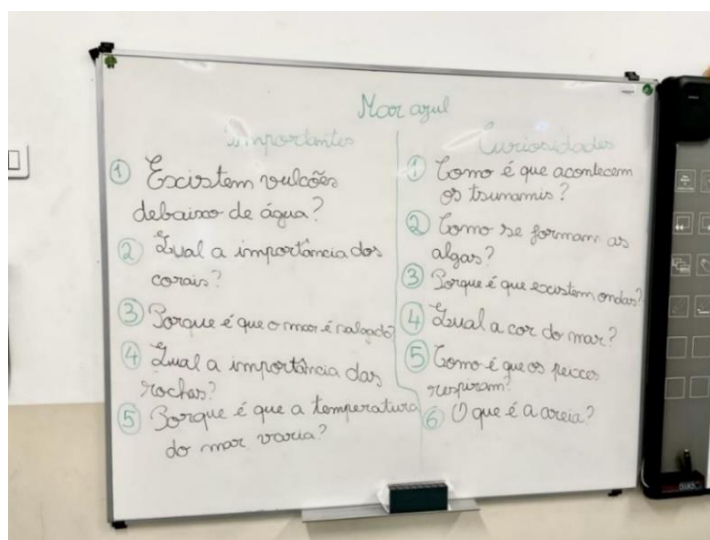 Mar azul
Importantes
① Existem vulcões
debaixo de água?
② Qual a importância dos
corais?
③ Porque é que o mar é salgado?
④ Qual a importância das
rochas?
⑤ Porque é que a temperatura
do mar varia?
Curiosidades
① Como é que acontecem
os tsunamis?
② Como se formam as
algas?
③ Porque é que existem ondas?
④ Qual a cor do mar?
⑤ Como é que os peixes
respiram?
⑥ O que é a areia?